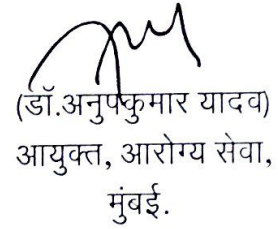 (डॉ.अनुपकुमार यादव)
आयुक्त, आरोग्य सेवा,
मुंबई.